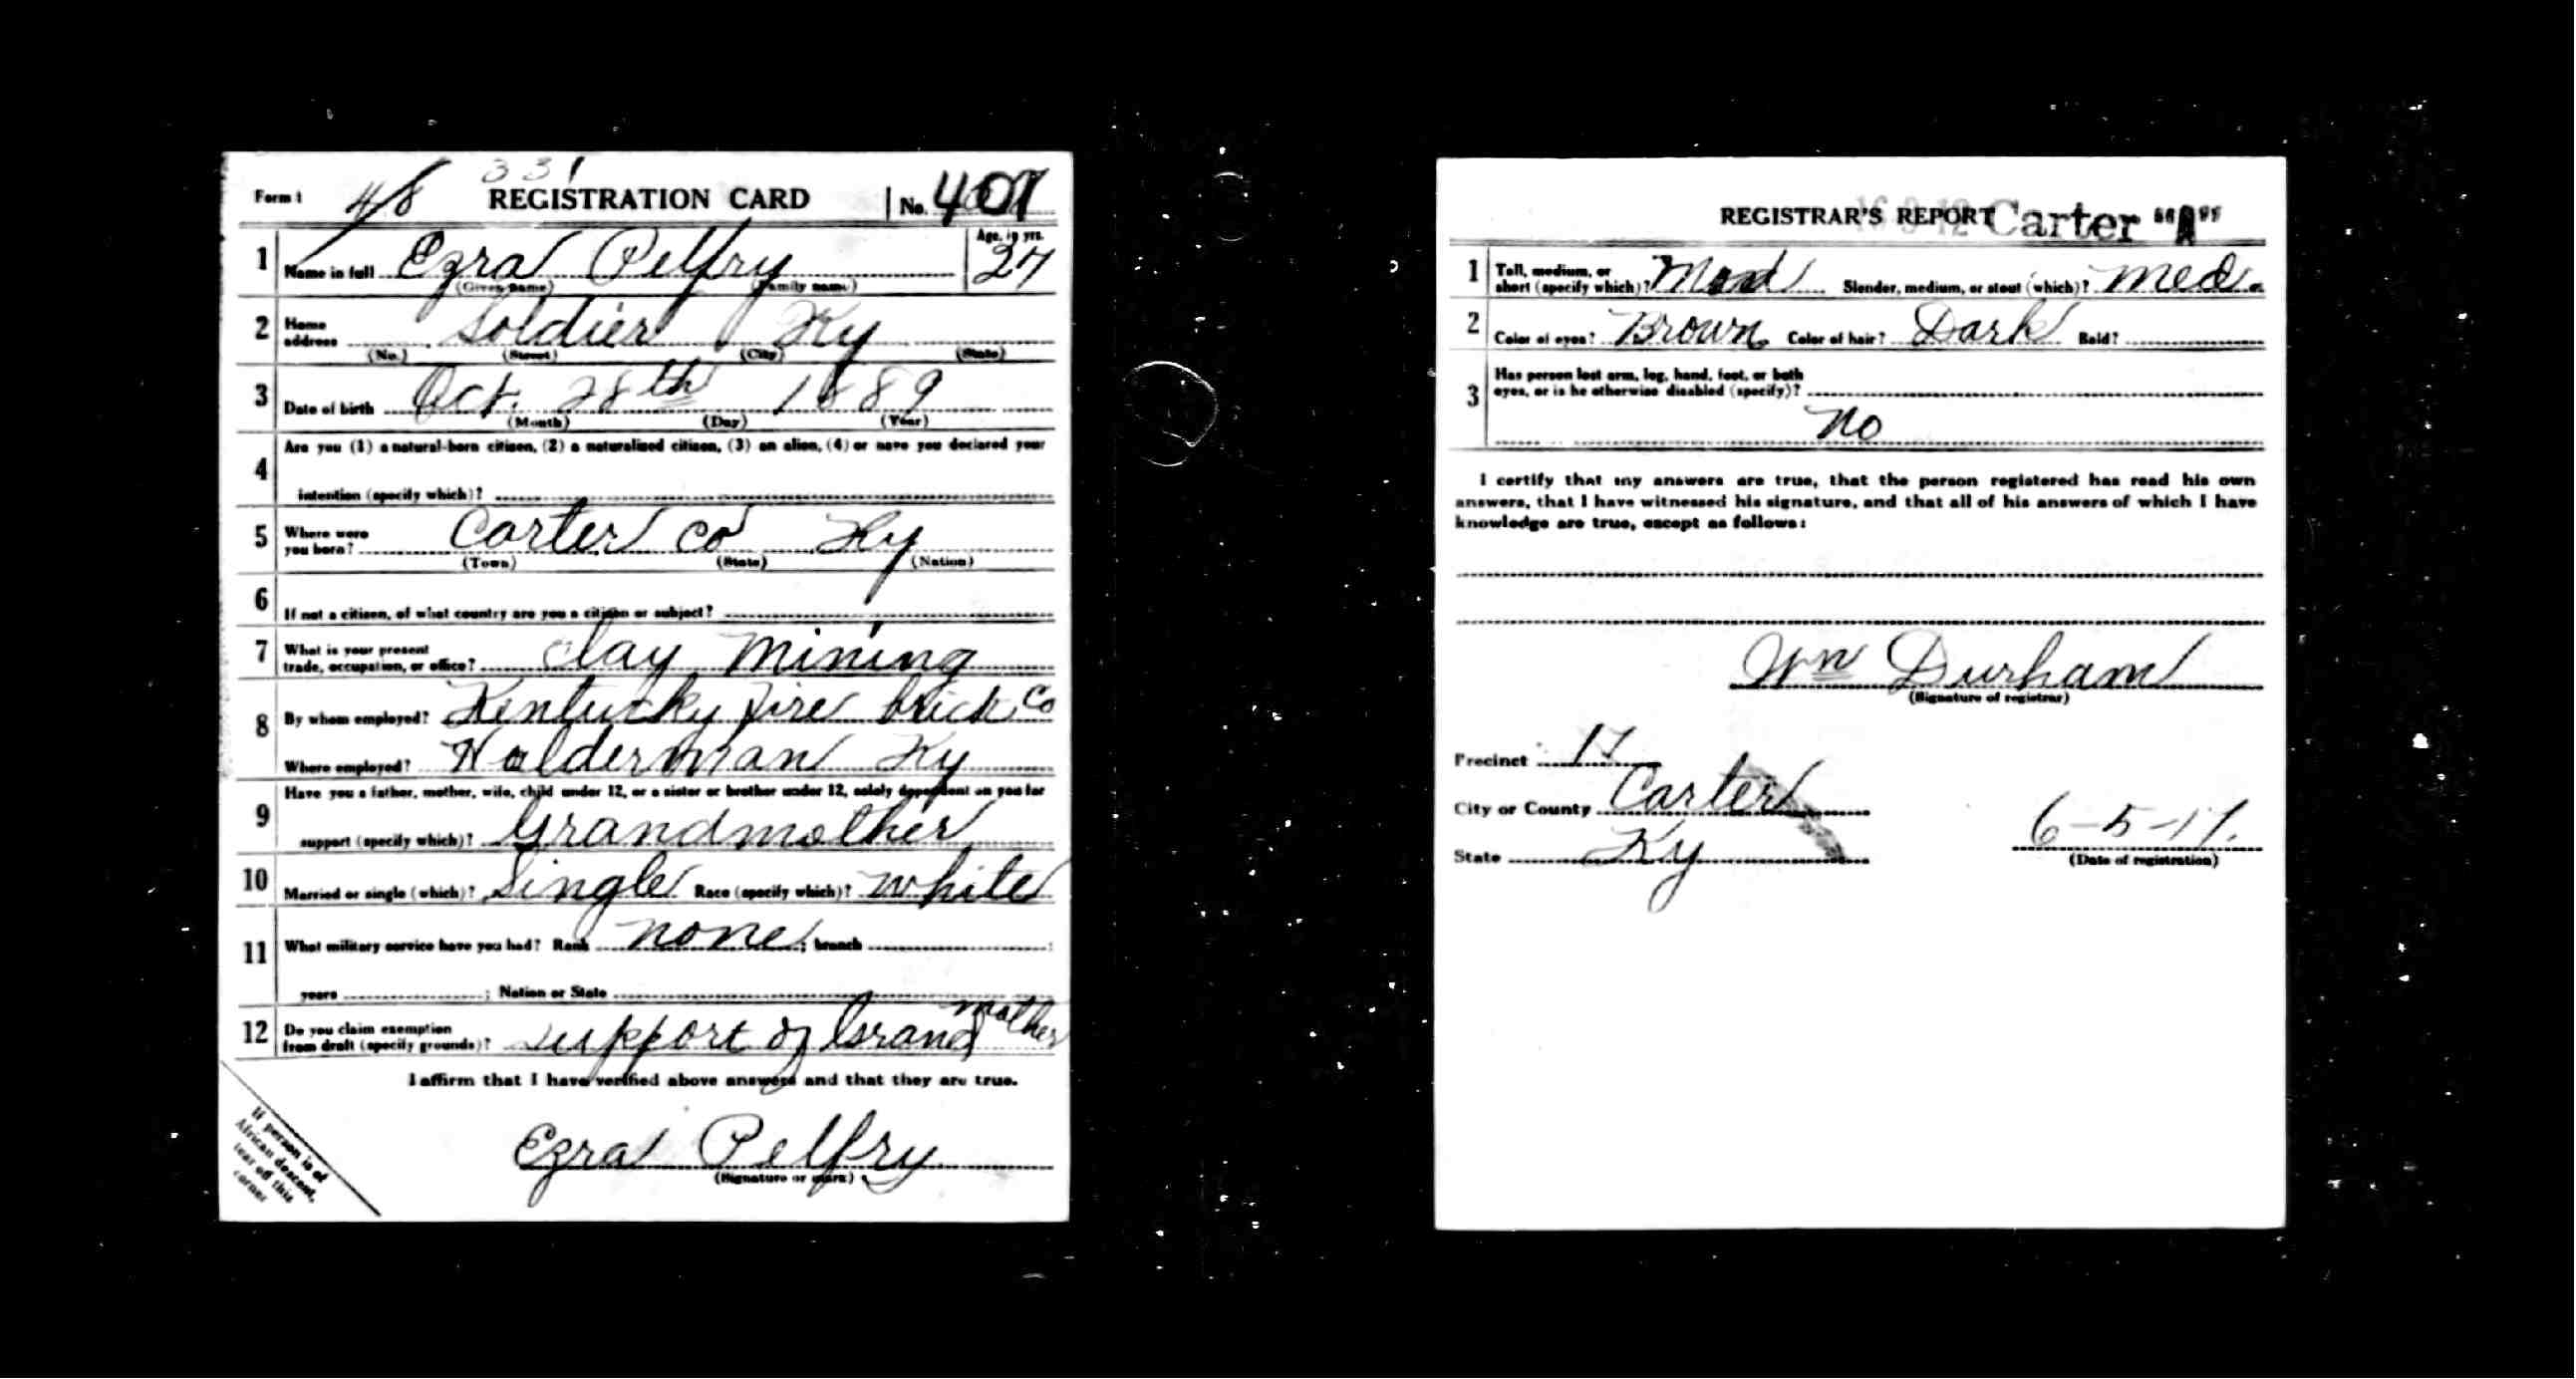 331
Form 1 4/8 REGISTRATION CARD No. 407
1 Name in full Ezra Pelfry Age, in yrs. 27
(Given name) (Family name)
2 Home address Soldier Ky
(No.) (Street) (City) (State)
3 Date of birth Oct. 28th 1889
(Month) (Day) (Year)
4 Are you (1) a natural-born citizen, (2) a naturalized citizen, (3) an alien, (4) or have you declared your
intention (specify which)?
5 Where were you born? Carter Co Ky
(Town) (State) (Nation)
6 If not a citizen, of what country are you a citizen or subject?
7 What is your present trade, occupation, or office? Clay Mining
8 By whom employed? Kentucky fire brick Co
Where employed? Halderman Ky
9 Have you a father, mother, wife, child under 12, or a sister or brother under 12, solely dependent on you for
support (specify which)? Grandmother
10 Married or single (which)? Single Race (specify which)? White
11 What military service have you had? Rank none; branch
years ; Nation or State
12 Do you claim exemption from draft (specify grounds)? Support of Grand mother
I affirm that I have verified above answers and that they are true.
Ezra Pelfry
(Signature or mark)
If person is of
African descent,
tear off this
corner
REGISTRAR'S REPORT Carter
1 Tall, medium, or short (specify which)? Med Slender, medium, or stout (which)? Med.
2 Color of eyes? Brown Color of hair? Dark Bald?
3 Has person lost arm, leg, hand, foot, or both
eyes, or is he otherwise disabled (specify)?
No
I certify that my answers are true, that the person registered has read his own
answers, that I have witnessed his signature, and that all of his answers of which I have
knowledge are true, except as follows:
Wm Durham
(Signature of registrar)
Precinct 17
City or County Carter
State Ky
6-5-17.
(Date of registration)